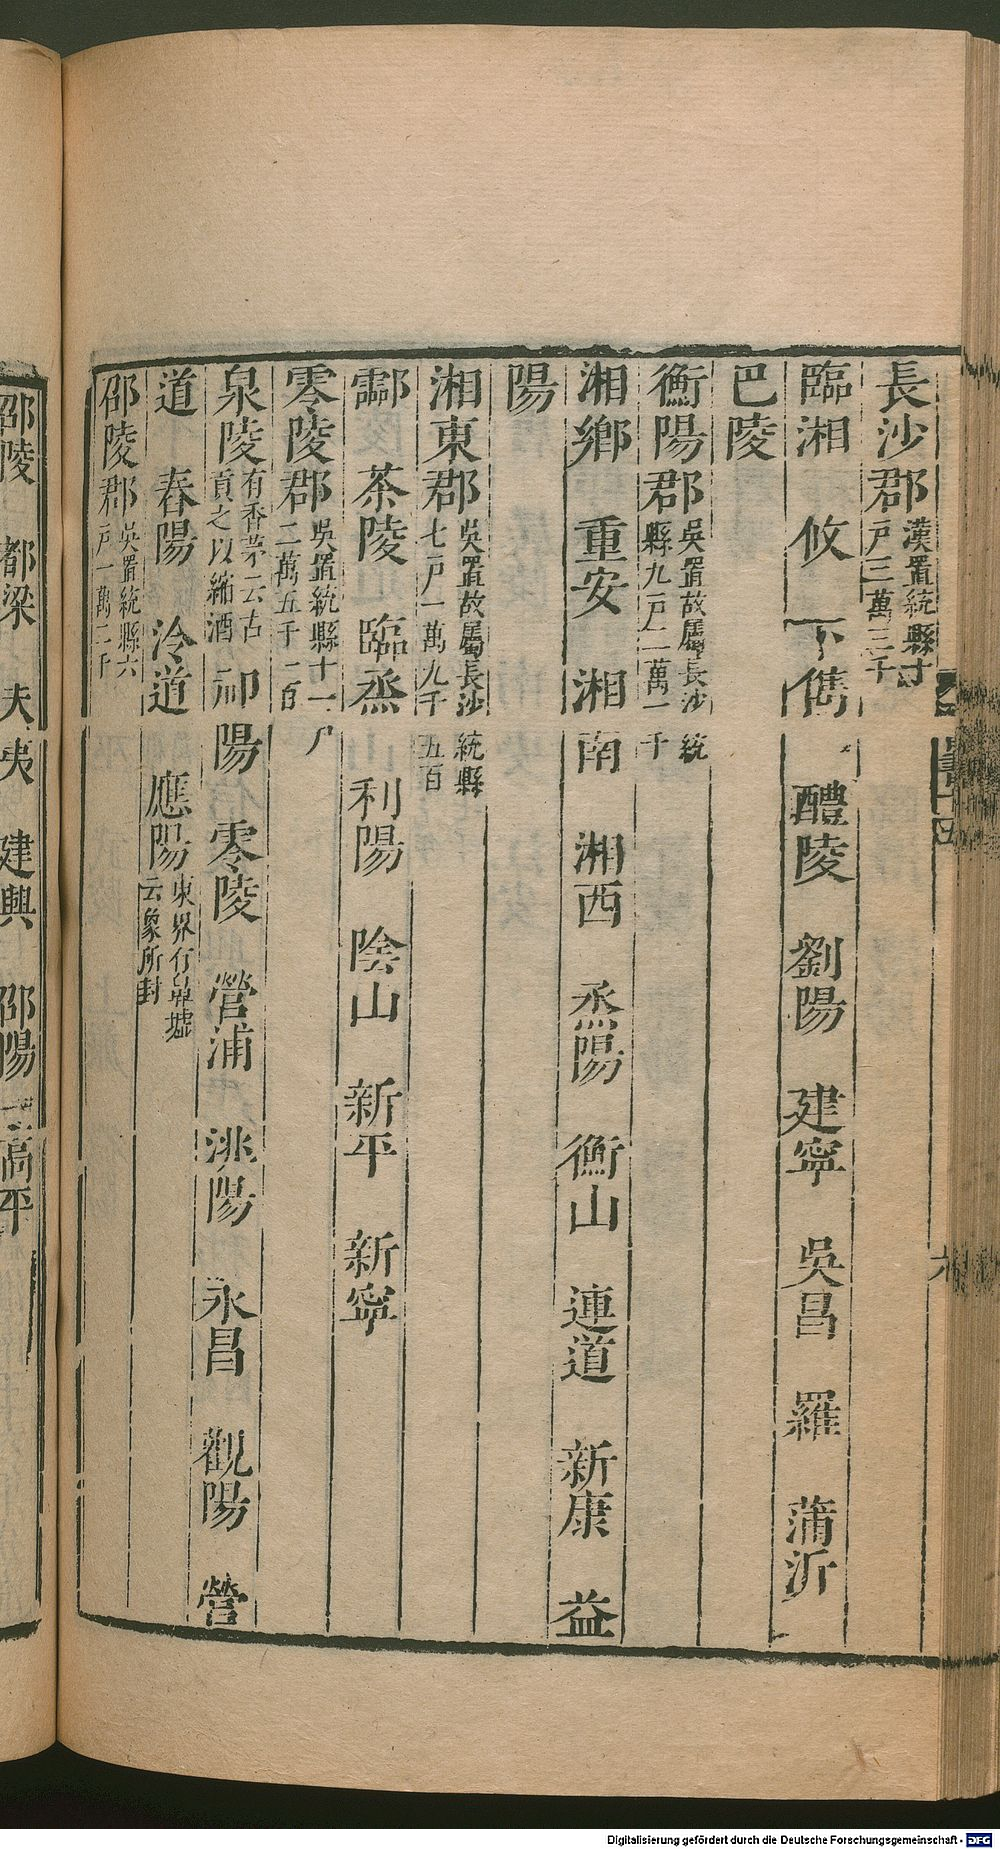 長沙郡漢置統縣十戶三萬三千
臨湘　攸　下雋　醴陵　劉陽　建寧　吳昌　羅　蒲沂
巴陵
衡陽郡吳置故屬長沙統縣九戶二萬一千
湘鄉　重安　湘南　湘西　烝陽　衡山　連道　新康　益
陽
湘東郡吳置故屬長沙統縣七戶一萬九千五百
酃　茶陵　臨烝　利陽　陰山　新平　新寧
零陵郡吳置統縣十一戶二萬五千一百
泉陵有香茅云古貢之以縮酒　祁陽　零陵　營浦　洮陽　永昌　觀陽　營
道　舂陽　泠道　應陽東界有鼻墟云象所封
邵陵郡吳置統縣六戶一萬二千
邵陵　都梁　夫夷　建興　邵陽　高平
Digitalisierung gefördert durch die Deutsche Forschungsgemeinschaft - DFG